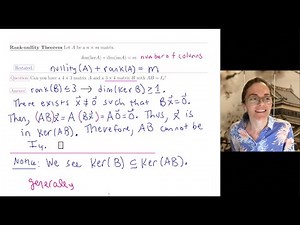 Rank-nullity Theorem Let A be a n × m matrix.
dim(im A) + dim(ker A) = m number of columns
Restated: nullity(A) + rank(A) = m
Question: Can you have a 4 × 3 matrix A and a 3 × 4 matrix B with AB = I₄?
rank(B) ≤ 3 → dim(Ker B) ≥ 1.
There exists x⃗ ≠ 0⃗ such that Bx⃗ = 0⃗.
Then, (AB)x⃗ = A(Bx⃗) = A0⃗ = 0⃗. Thus, x⃗ is
in Ker(AB). Therefore, AB cannot be
I₄. □
Note: We see Ker(B) ⊆ Ker(AB).
generally